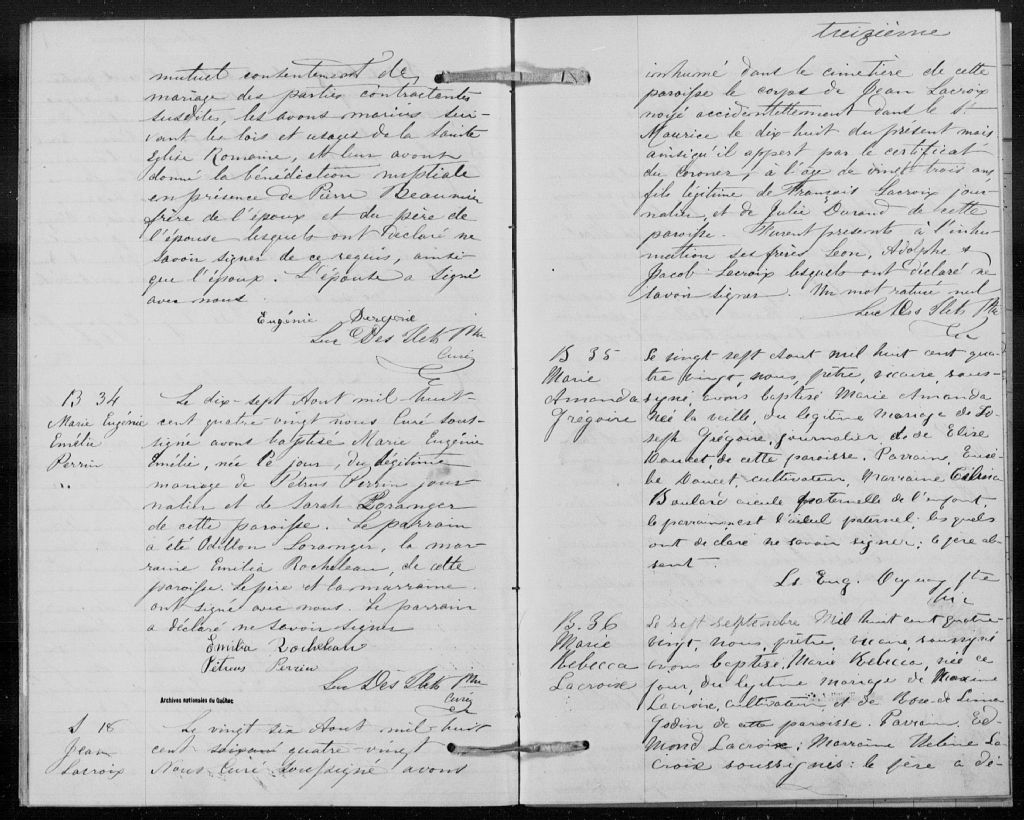 mutuel consentement de
mariage des parties contractantes
susdites, les avons mariés sui-
vant les lois et usages de la Sainte
Eglise Romaine, et leur avons
donné la bénédiction nuptiale
en présence de Pierre Beaumier
frère de l'époux et du père de
l'épouse lesquels ont déclaré ne
savoir signer de ce requis, ainsi
que l'époux. L'épouse a signé
avec nous
Eugénie
Luc Des Ilets Ptre
Curé
B 34
Marie Eugénie
Emélie
Perrin
Le dix-sept Aout mil-huit
cent quatre vingt nous Curé sous-
signé avons baptisé Marie Eugénie
Emélie, née ce jour, du légitime
mariage de Pétrus Perrin jour-
nalier et de Sarah Loranger
de cette paroisse. Le parrain
a été Odillon Loranger, la mar-
raine Emilia Rocheleau, de cette
paroisse. Le père et la marraine
ont signé avec nous. Le parrain
a déclaré ne savoir signer
Emilia Rocheleau
Pétrus Perrin
Luc Des Ilets Ptre
Curé
Archives nationales du Québec
S 18
Jean
Lacroix
Le vingt six Aout mil-huit
cent soixant quatre-vingt
Nous Curé Soussigné avons
treizième
inhumé dans le cimetière de cette
paroisse le corps de Jean Lacroix
noyé accidentellement dans le St
Maurice le dix-huit du présent mois
ainsiqu'il appert par le certificat
du coroner, à l'âge de vingt trois ans
fils légitime de François Lacroix jour-
nalier, et de Julie Durand de cette
paroisse. Furent présents à l'inhu-
mation ses frères Leon, Adolphe &
Jacob Lacroix lesquels ont déclaré ne
savoir signer. Un mot raturé nul
Luc Des Ilets Ptre
B 35
Marie
Amanda
Grégoire
Le vingt sept Aout mil huit cent qua-
tre vingt, nous, prêtre, vicaire, sous-
signé, avons baptisé Marie Amanda
née la veille, du légitime mariage de Jo-
seph Grégoire, journalier, & de Elise
Doucet, de cette paroisse. Parrain, Eusè-
be Doucet cultivateur, Marraine
Boulard aieule paternelle de l'enfant,
le parrain est l'aieul paternel; les quels
ont declaré ne savoir signer; le père ab-
sent.
Ls Eug. Ptre
Vic
B. 36
Marie
Rebecca
Lacroix
Le sept septembre Mil huit cent quatre
vingt, nous, prêtre, vicaire, soussigné
avons baptisé, Marie Rebecca, née ce
jour, du légitime mariage de Maxime
Lacroix, cultivateur et de Rose de Lima
Godin de cette paroisse. Parrain, Ed-
mond Lacroix; Marraine Heléne La-
croix soussignés: le père a dé-